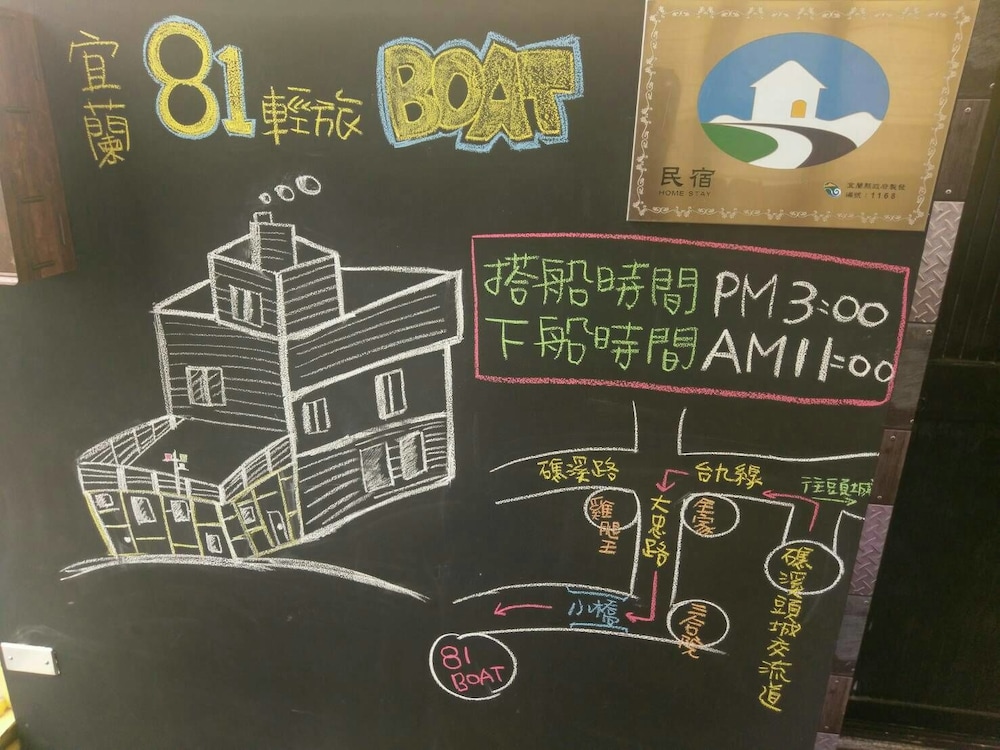 宜蘭 81 輕旅 BOAT
民宿
HOME STAY
宜蘭縣政府製發
編號:1168
搭船時間 PM 3:00
下船時間 AM 11:00
礁溪路
台九線
往頭城
雞腿王
大忠路
全家
礁溪頭城交流道
小橋
三合院
81
BOAT